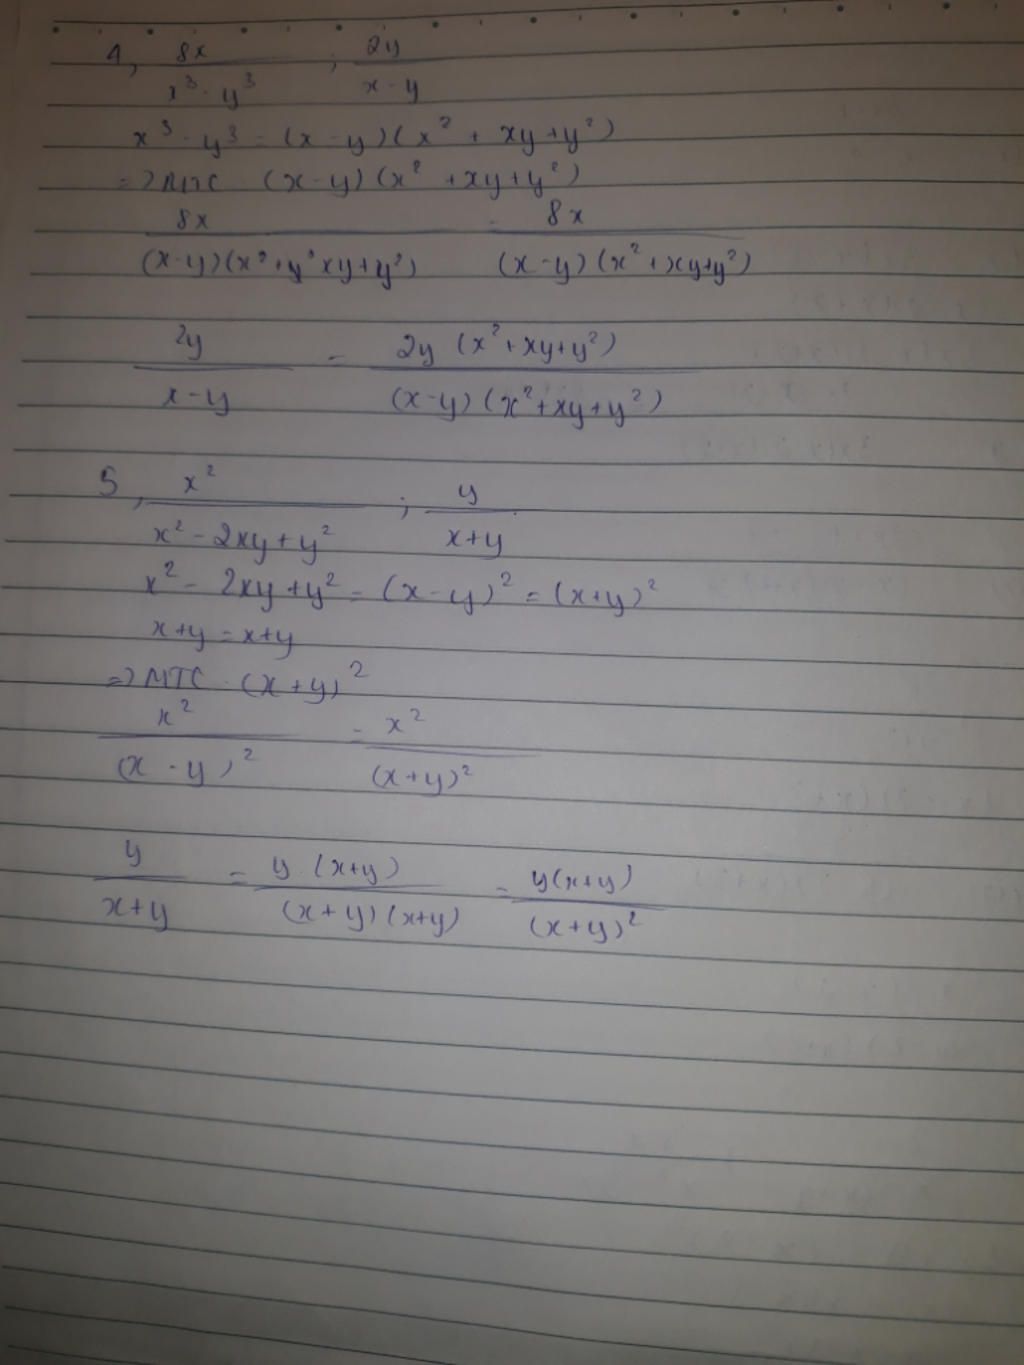 4, 8x/(x³ - y³) ; 2y/(x - y)
x³ - y³ = (x - y)(x² + xy + y²)
=> MTC : (x - y)(x² + xy + y²)
8x/((x - y)(x² + y² xy + y²)) = 8x/((x - y)(x² + xy + y²))
2y/(x - y) = 2y (x² + xy + y²)/((x - y)(x² + xy + y²))
5, x²/(x² - 2xy + y²) ; y/(x + y)
x² - 2xy + y² = (x - y)² = (x + y)²
x + y = x + y
=> MTC : (x + y)²
x²/(x - y)² = x²/(x + y)²
y/(x + y) = y . (x + y)/((x + y)(x + y)) = y(x + y)/(x + y)²